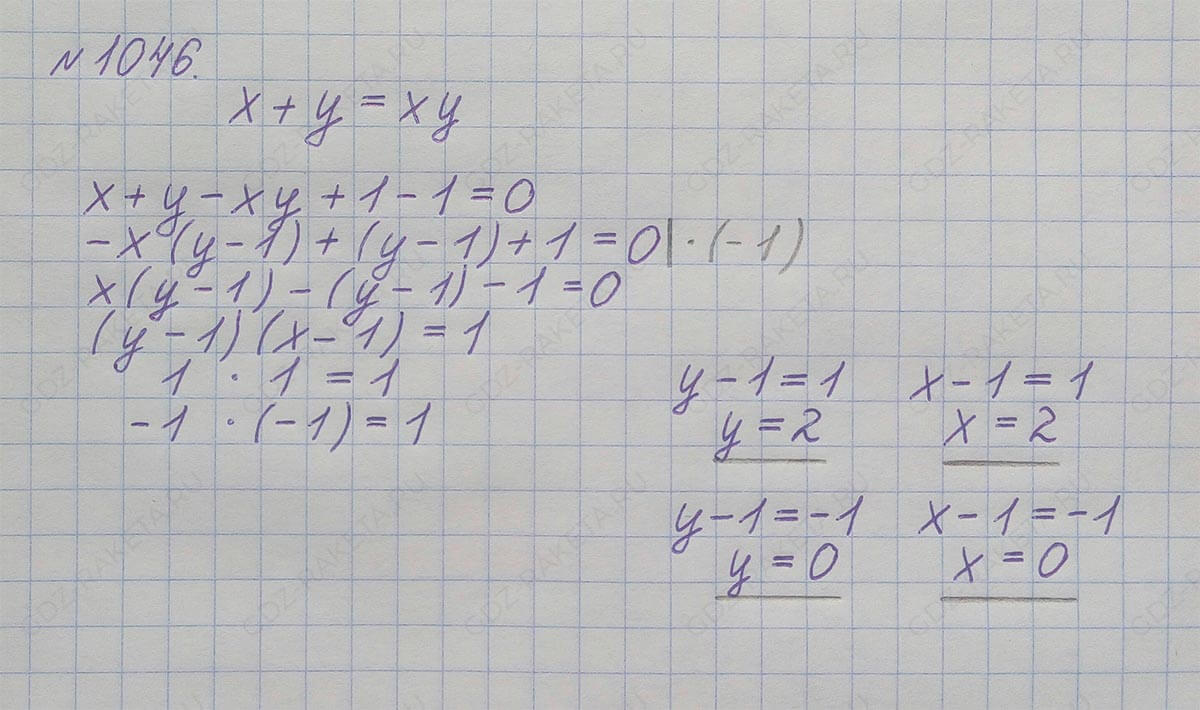 №1046.
x + y = xy
x + y - xy + 1 - 1 = 0
-x (y - 1) + (y - 1) + 1 = 0 | · (-1)
x (y - 1) - (y - 1) - 1 = 0
(y - 1) (x - 1) = 1
1 · 1 = 1
-1 · (-1) = 1
y - 1 = 1 x - 1 = 1
y = 2 x = 2
y - 1 = -1 x - 1 = -1
y = 0 x = 0
GDZ-RAKETA.RU